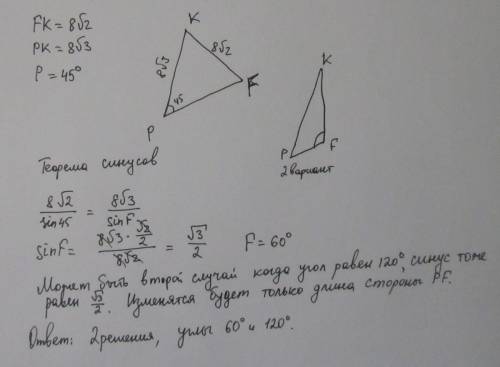 FK = 8√2
PK = 8√3
P = 45°
K
8√3
8√2
45
F
P
K
P
F
2 вариант
Теорема синусов
8√2/sin45 = 8√3/sinF
sinF = (8√3 · √2/2)/8√2 = √3/2 F = 60°
Может быть второй случай когда угол равен 120°, синус тоже
равен √3/2. Изменятся будет только длина стороны PF.
Ответ: 2 решения, углы 60° и 120°.